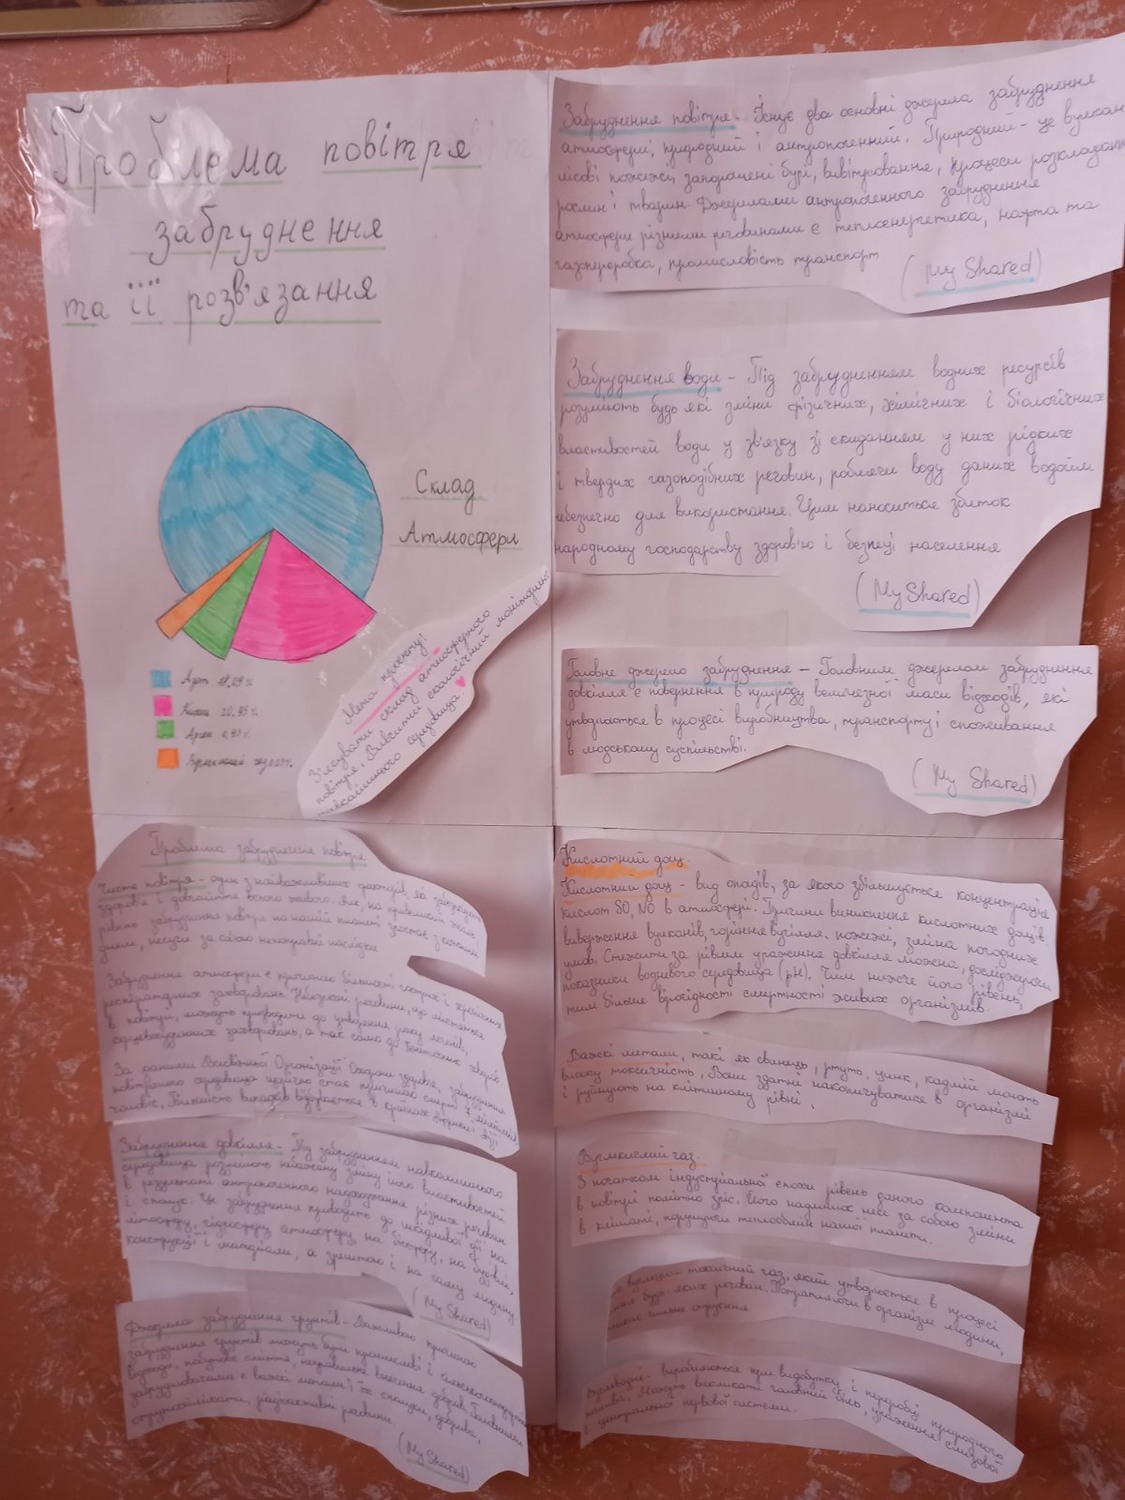 Проблема повітря
забруднення
та її розв'язання
Склад
Атмосфери
Азот 78,09%
Кисень 20,95%
Аргон 0,93%
Вуглекислий газ
Мета проекту:
З'ясувати склад атмосферного
повітря, Вивчити екологічний моніторинг
навколишнього середовища
Забруднення повітря - Існує два основні джерела забруднення
атмосфери, природний і антропогенний. Природний - це вулкани
лісові пожежі, запорошені бурі, вивітрювання, процеси розкладання
рослин і тварин. Джерелами антропогенного забруднення
атмосфери різними речовинами є теплоенергетика, нафта та
газопереробка, промисловість транспорт
(My Shared)
Забруднення води - Під забрудненням водних ресурсів
розуміють будь які зміни фізичних, хімічних і біологічних
властивостей води у зв'язку зі скиданням у них рідких
і твердих газоподібних речовин, робляги воду даних водойм
небезпечно для використання. Цим наноситься збиток
народному господарству здоров'ю і безпеці населення
(My Shared)
Головне джерело забруднення - Головним джерелом забруднення
довкілля є повернення в природу величезної маси відходів, які
утворюються в процесі виробництва, транспорту і споживання
в людському суспільстві.
(My Shared)
Проблема забруднення повітря
Чисте повітря - один з найважливіших факторів, які
здоров'я і довголіття всього живого. Але, на превеликий жаль,
рівень забруднення повітря на нашій планеті зростає з кожним
днем, несучи за собою непоправні наслідки
Забруднення атмосфери є причиною більшості гострих і хронічних
респіраторних захворювань. Токсичні речовини, що містяться
в повітрі, можуть призводити до утворення раку легень,
серцевосудинних захворювань, а так само до
За даними Всесвітньої Організації Охорони здоров'я, забруднення
повітряного середовища щорічно стає причиною смерті 7 мільйонів
чоловік, Більшість випадків відбувається в країнах Африки і Азії
Забруднення довкілля - Під забрудненням навколишнього
середовища розуміють небажану зміну його властивостей
в результаті антропогенного надходження різних речовин
і сполук. Це забруднення приводить до шкідливої дії на
літосферу, гідросферу, атмосферу, на біосферу, на будівлі,
конструкції і матеріали, а зрештою і на саму людину
(My Shared)
Джерела забруднення грунтів - Важливою причиною
забруднення грунтів можуть бути промислові і сільськогосподарські
відходи, побутове сміття, неправильне внесення добрив. Головними
забруднювачами є важкі метали і їх сполуки, добрива,
отрутохімікати, радіоактивні речовини
(My Shared)
Кислотний дощ
Кислотний дощ - вид опадів, за якого збільшується концентрація
кислот SO, NO в атмосфері. Причини виникнення кислотних дощів:
виверження вулканів, горіння вугілля, пожежі, зміна погодних
умов. Стежити за рівнем ураження довкілля можна, досліджуючи
показники водного середовища (pH). Чим нижче його рівень,
тим більше вірогідності смертності живих організмів.
Важкі метали, такі як свинець, ртуть, цинк, кадмій мають
високу токсичність, Вони здатні накопичуватися в організмі
і руйнують на клітинному рівні.
Вуглекислий газ.
З початком індустріальної епохи рівень даного компонента
в повітрі помітно зріс. Його надлишок несе за собою зміни
в кліматі, порушуючи теплообмін нашої планети.
вуглецю - токсичний газ, який утворюється в процесі
будь-яких речовин. Потрапляючи в організм людини,
сильне отруєння
Вуглеводні - виробляються при видобутку і переробці природного
палива. Можуть викликати головний біль, ураження слизової
і центральної нервової системи.